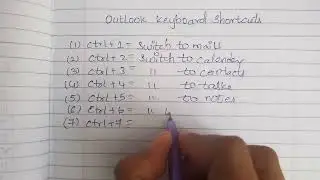 Outlook Keyboard Shortcuts
(1) Ctrl+1 = Switch to mails
(2) Ctrl+2 = Switch to Calender
(3) Ctrl+3 = 11 -to contacts
(4) Ctrl+4 = 11 -to tasks
(5) Ctrl+5 = 11 -to notes
(6) Ctrl+6 = 11
(7) Ctrl+7 =